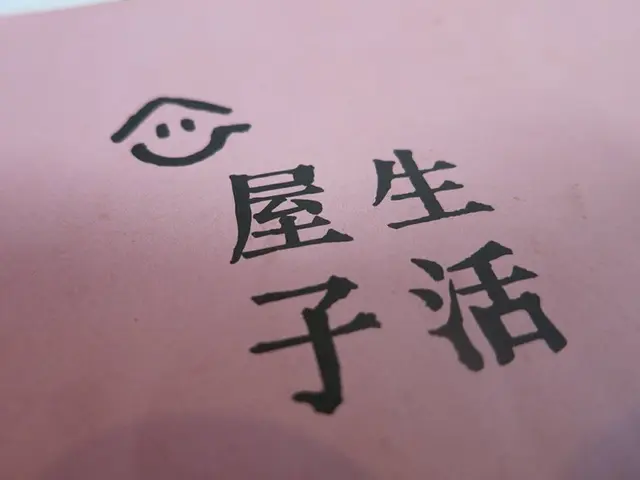 生活
屋子